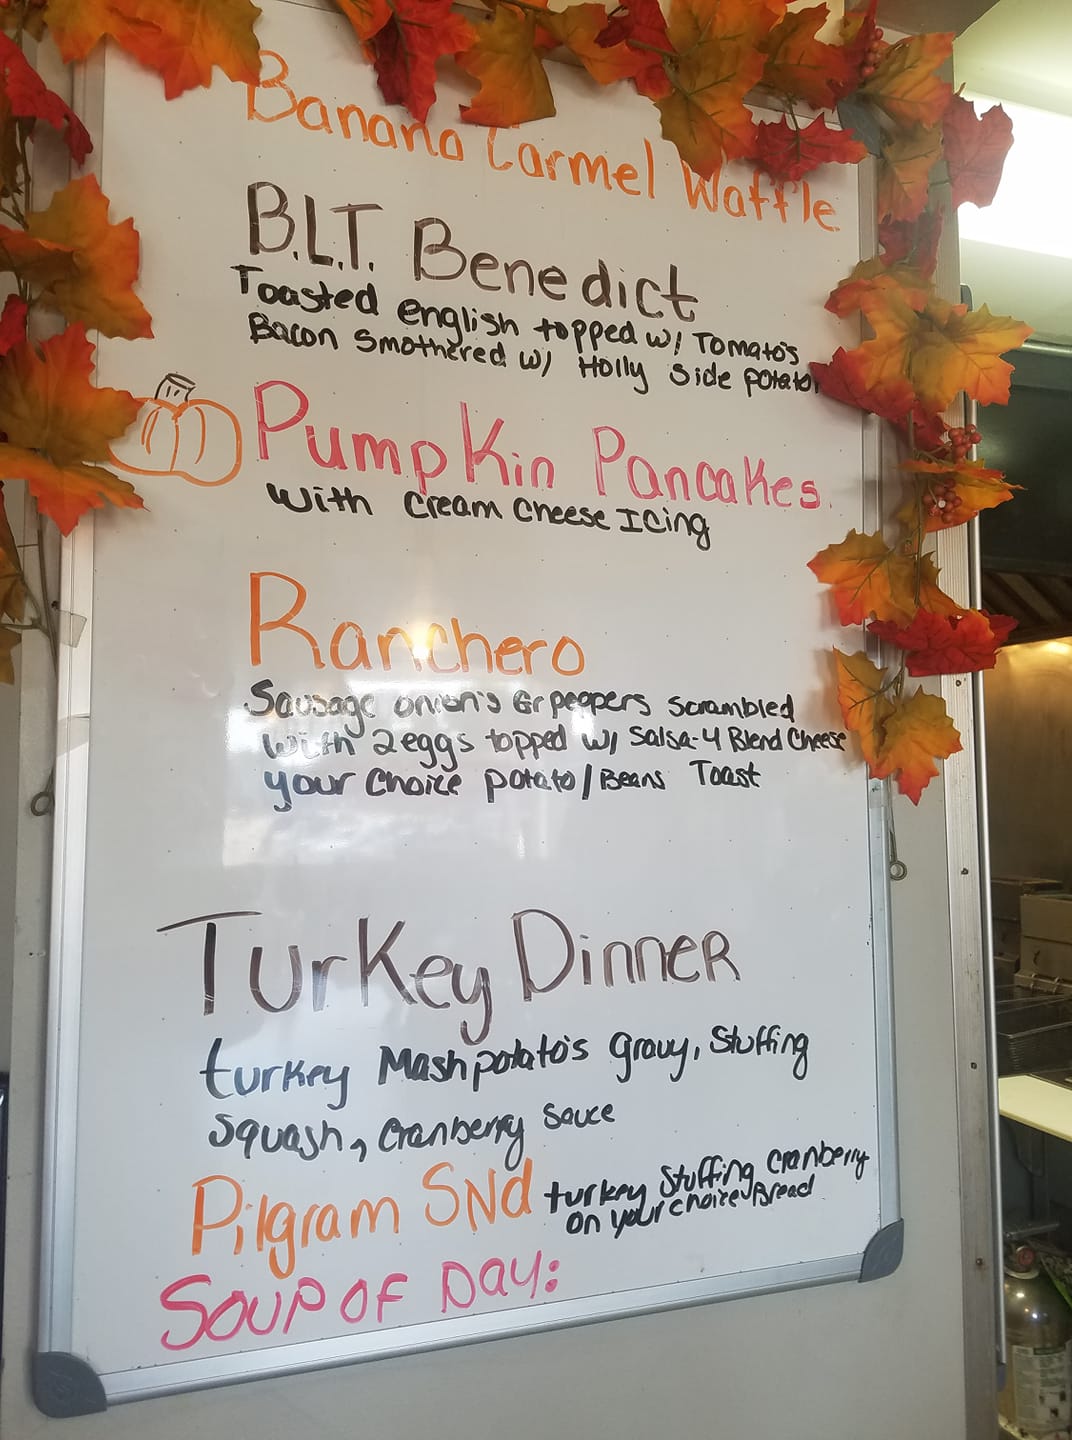 Banana Carmel Waffle
B.L.T. Benedict
Toasted english topped w/ Tomato's
Bacon Smothered w/ Holly Side potato
Pumpkin Pancakes
with cream cheese Icing
Ranchero
Sausage onion's Gr peopers Scrambled
with 2 eggs topped w/ Salsa-4 Blend Cheese
your choice potato/Beans Toast
Turkey Dinner
turkey Mashpotato's gravy, Stuffing
Squash, Cranberry Sauce
Pilgram SNd turkey Stuffing cranberry
on your choice Bread
Soup of Day: